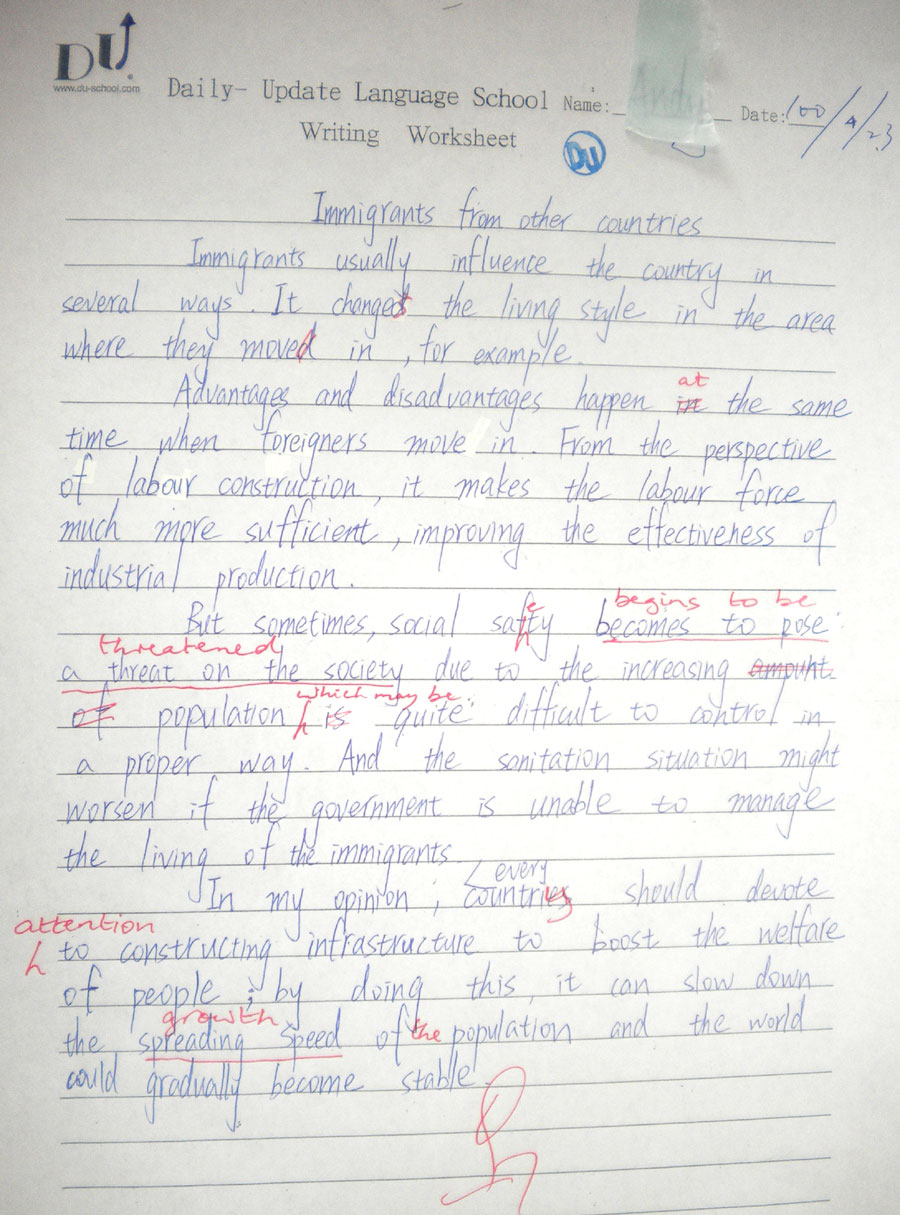 DU
www.du-school.com
Daily- Update Language School Name: Andy Date: 100/4/23
Writing Worksheet
DU
Immigrants from other countries
Immigrants usually influence the country in
several ways. It changes the living style in the area
where they moved in, for example.
at
Advantages and disadvantages happen in the same
time when foreigners move in. From the perspective
of labour construction, it makes the labour force
much more sufficient, improving the effectiveness of
industrial production.
begins to be
But sometimes, social safety becomes to pose
threatened
a threat on the society due to the increasing amount
which may be
of population is quite difficult to control in
a proper way. And the sanitation situation might
worsen if the government is unable to manage
the living of the immigrants.
every
In my opinion, country should devote
attention
to constructing infrastructure to boost the welfare
of people; by doing this, it can slow down
growth
the spreading speed of the population and the world
could gradually become stable.